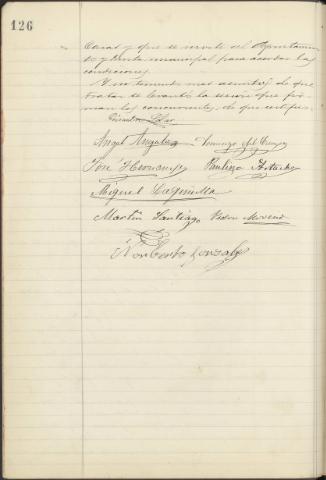 126
Casas y que se invite al Ayuntamien
to y Junta municipal para acordar las
condiciones.
Y no teniendo mas asuntos de que
tratar se levantó la sesión que fir
man los concurrentes, de que certifico.
Angel Angulo
José Hernandez Paulino
Miguel Laguilla
Martin Santiago Pedro Moreno
Norberto Gonzalez